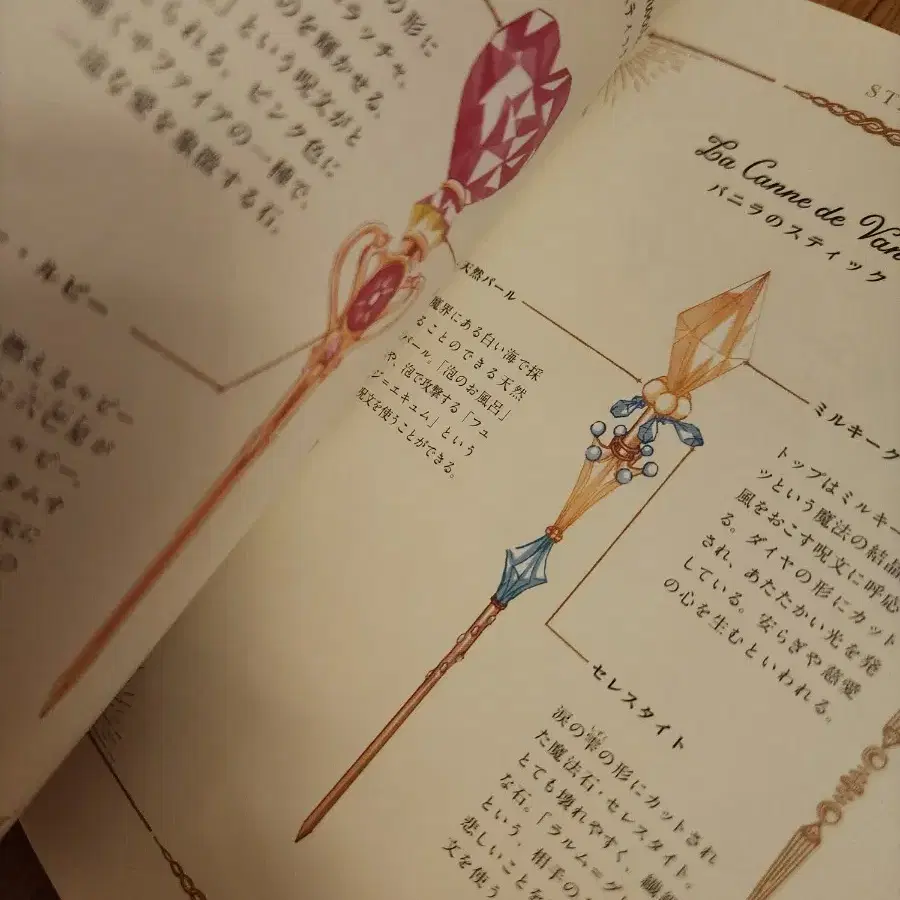 の形に
ラッチャ、
のを輝かせる、
」という呪文がと
られる。ピンク色に
輝くサファイアの一種で、
一途な愛を象徴する石。
ルビー
燃えるルビー
ST
La Canne de Van
バニラのスティック
天然パール
魔界にある白い海で採
ることのできる天然
パール。「泡のお風呂」
や、泡で攻撃する「フュ
ジ=エキュム」という
呪文を使うことができる。
ミルキーク
トップはミルキー
ツという魔法の結晶
風をおこす呪文に呼応
る。ダイヤの形にカット
され、あたたかい光を発
している。安らぎや慈愛
の心を生むといわれる。
セレスタイト
涙の雫の形にカットされ
た魔法石・セレスタイト。
とても壊れやすく、繊細
な石。「ラルム=グ
という、相手の
悲しいことを
文を使う